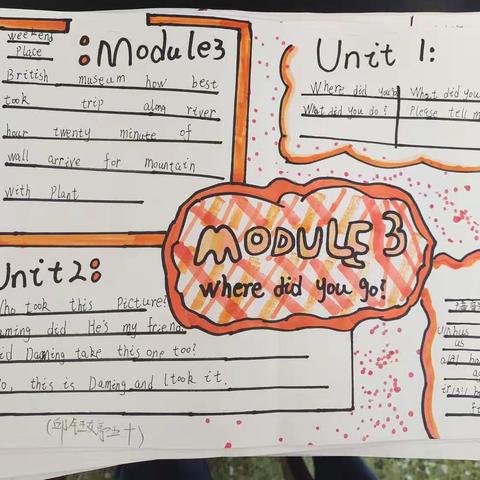 weekend
place
:Module3
British museum how best
took trip along river
hour twenty minute of
wall arrive for mountain
with Plant
Unit 1:
Where did you
What did you
What did you do?
Please tell m
MODULE 3
where did you go?
Unit2:
Who took this Picture?
aming did He's my friend
id Daming take this one too?
o, this is Daming and I took it.
us